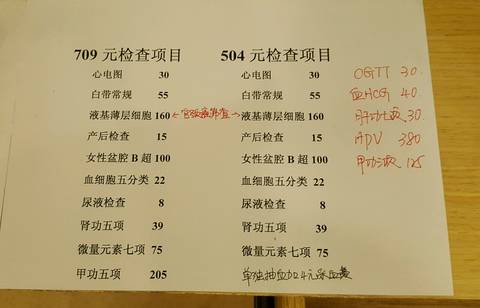 709 元检查项目
心电图 30
白带常规 55
液基薄层细胞 160
产后检查 15
女性盆腔 B 超 100
血细胞五分类 22
尿液检查 8
肾功五项 39
微量元素七项 75
甲功五项 205
504 元检查项目
心电图 30
白带常规 55
液基薄层细胞 160
产后检查 15
女性盆腔 B 超 100
血细胞五分类 22
尿液检查 8
肾功五项 39
微量元素七项 75
单独抽血加4元采血费
←宫颈癌筛查→
OGTT 30.
血HCG 40.
肝功七项 30
HPV 380
甲功三项 125